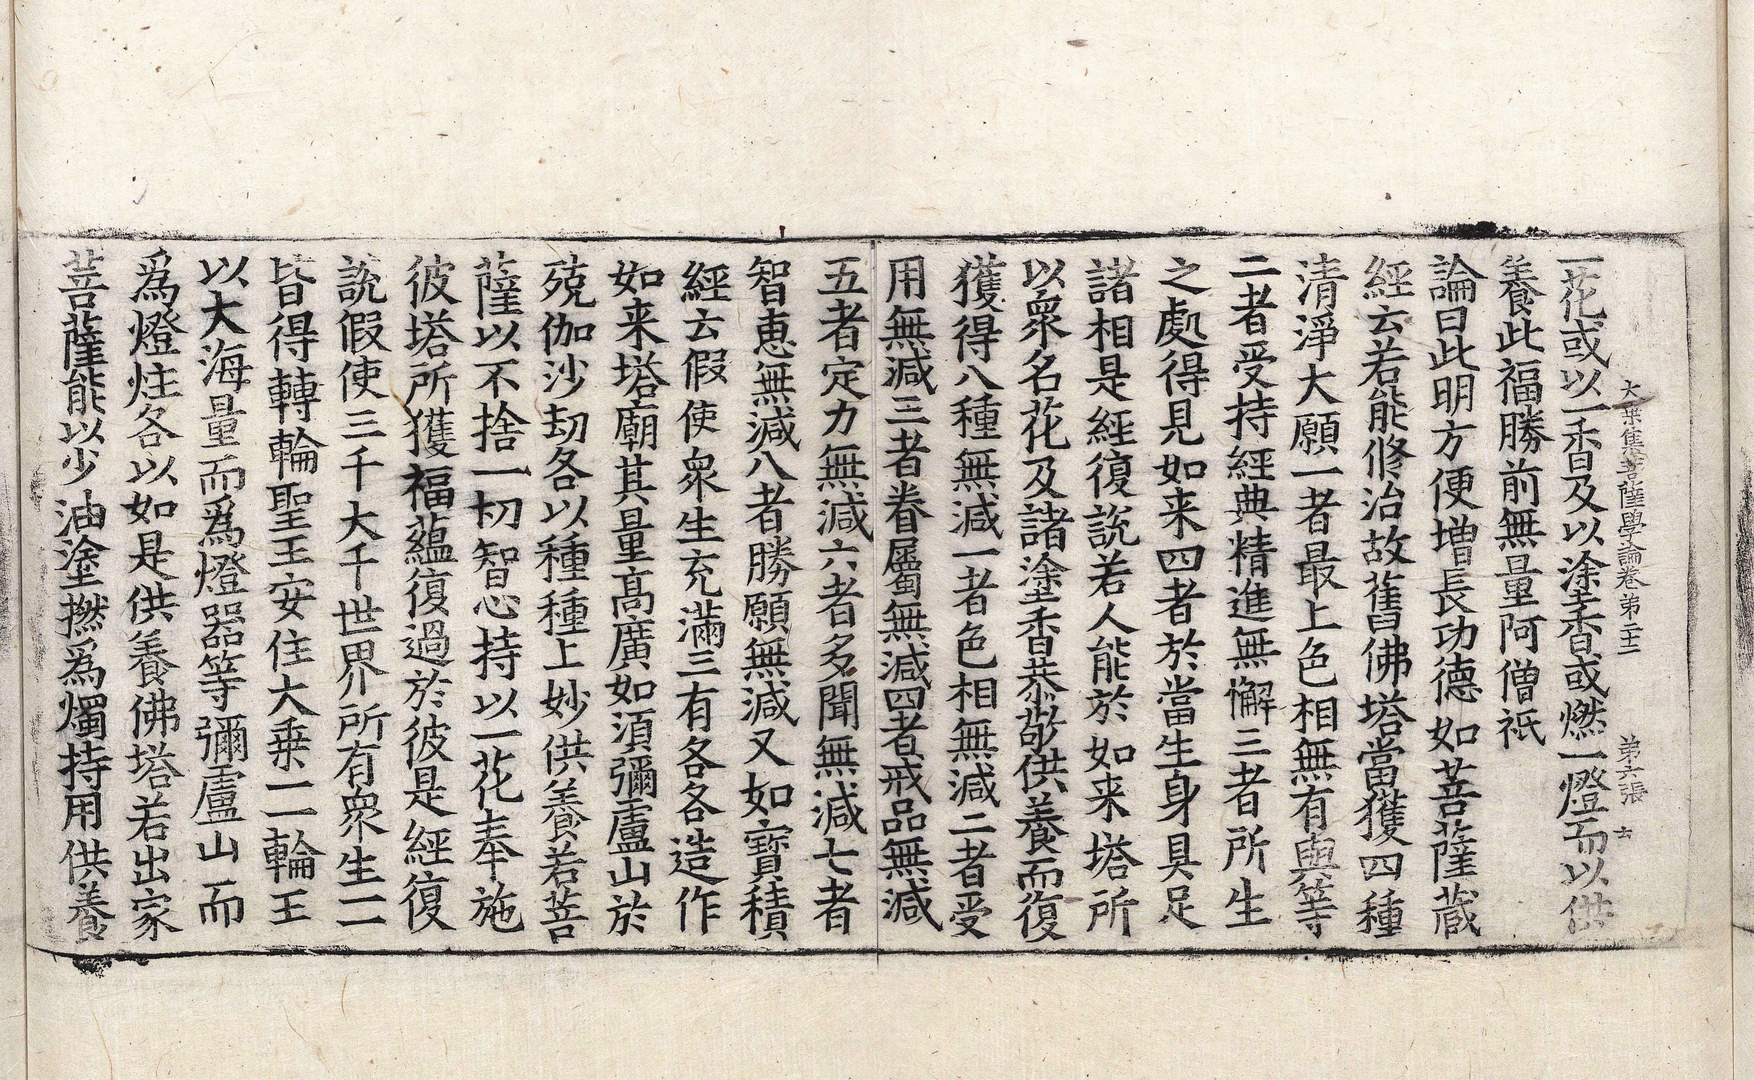 大乗集菩薩學論卷第二十二　第六張　古
一花或以一香及以塗香或燃一燈而以供
養此福勝前無量阿僧祇
論曰此明方便增長功德如菩薩藏
經云若能修治故舊佛塔當獲四種
清淨大願一者最上色相無有與等
二者受持經典精進無懈三者所生
之處得見如来四者於當生身具足
諸相是經復說若人能於如来塔所
以衆名花及諸塗香恭敬供養而復
獲得八種無減一者色相無減二者受
用無減三者眷屬無減四者戒品無減
五者定力無減六者多聞無減七者
智惠無減八者勝願無減又如寶積
經云假使衆生充滿三有各各造作
如来塔廟其量高廣如須彌盧山於
殑伽沙劫各以種種上妙供養若菩
薩以不捨一切智心持以一花奉施
彼塔所獲福蘊復過於彼是經復
說假使三千大千世界所有衆生一一
皆得轉輪聖王安住大乗一一輪王
以大海量而爲燈器等彌盧山而
爲燈炷各以如是供養佛塔若出家
菩薩能以少油塗撚爲燭持用供養